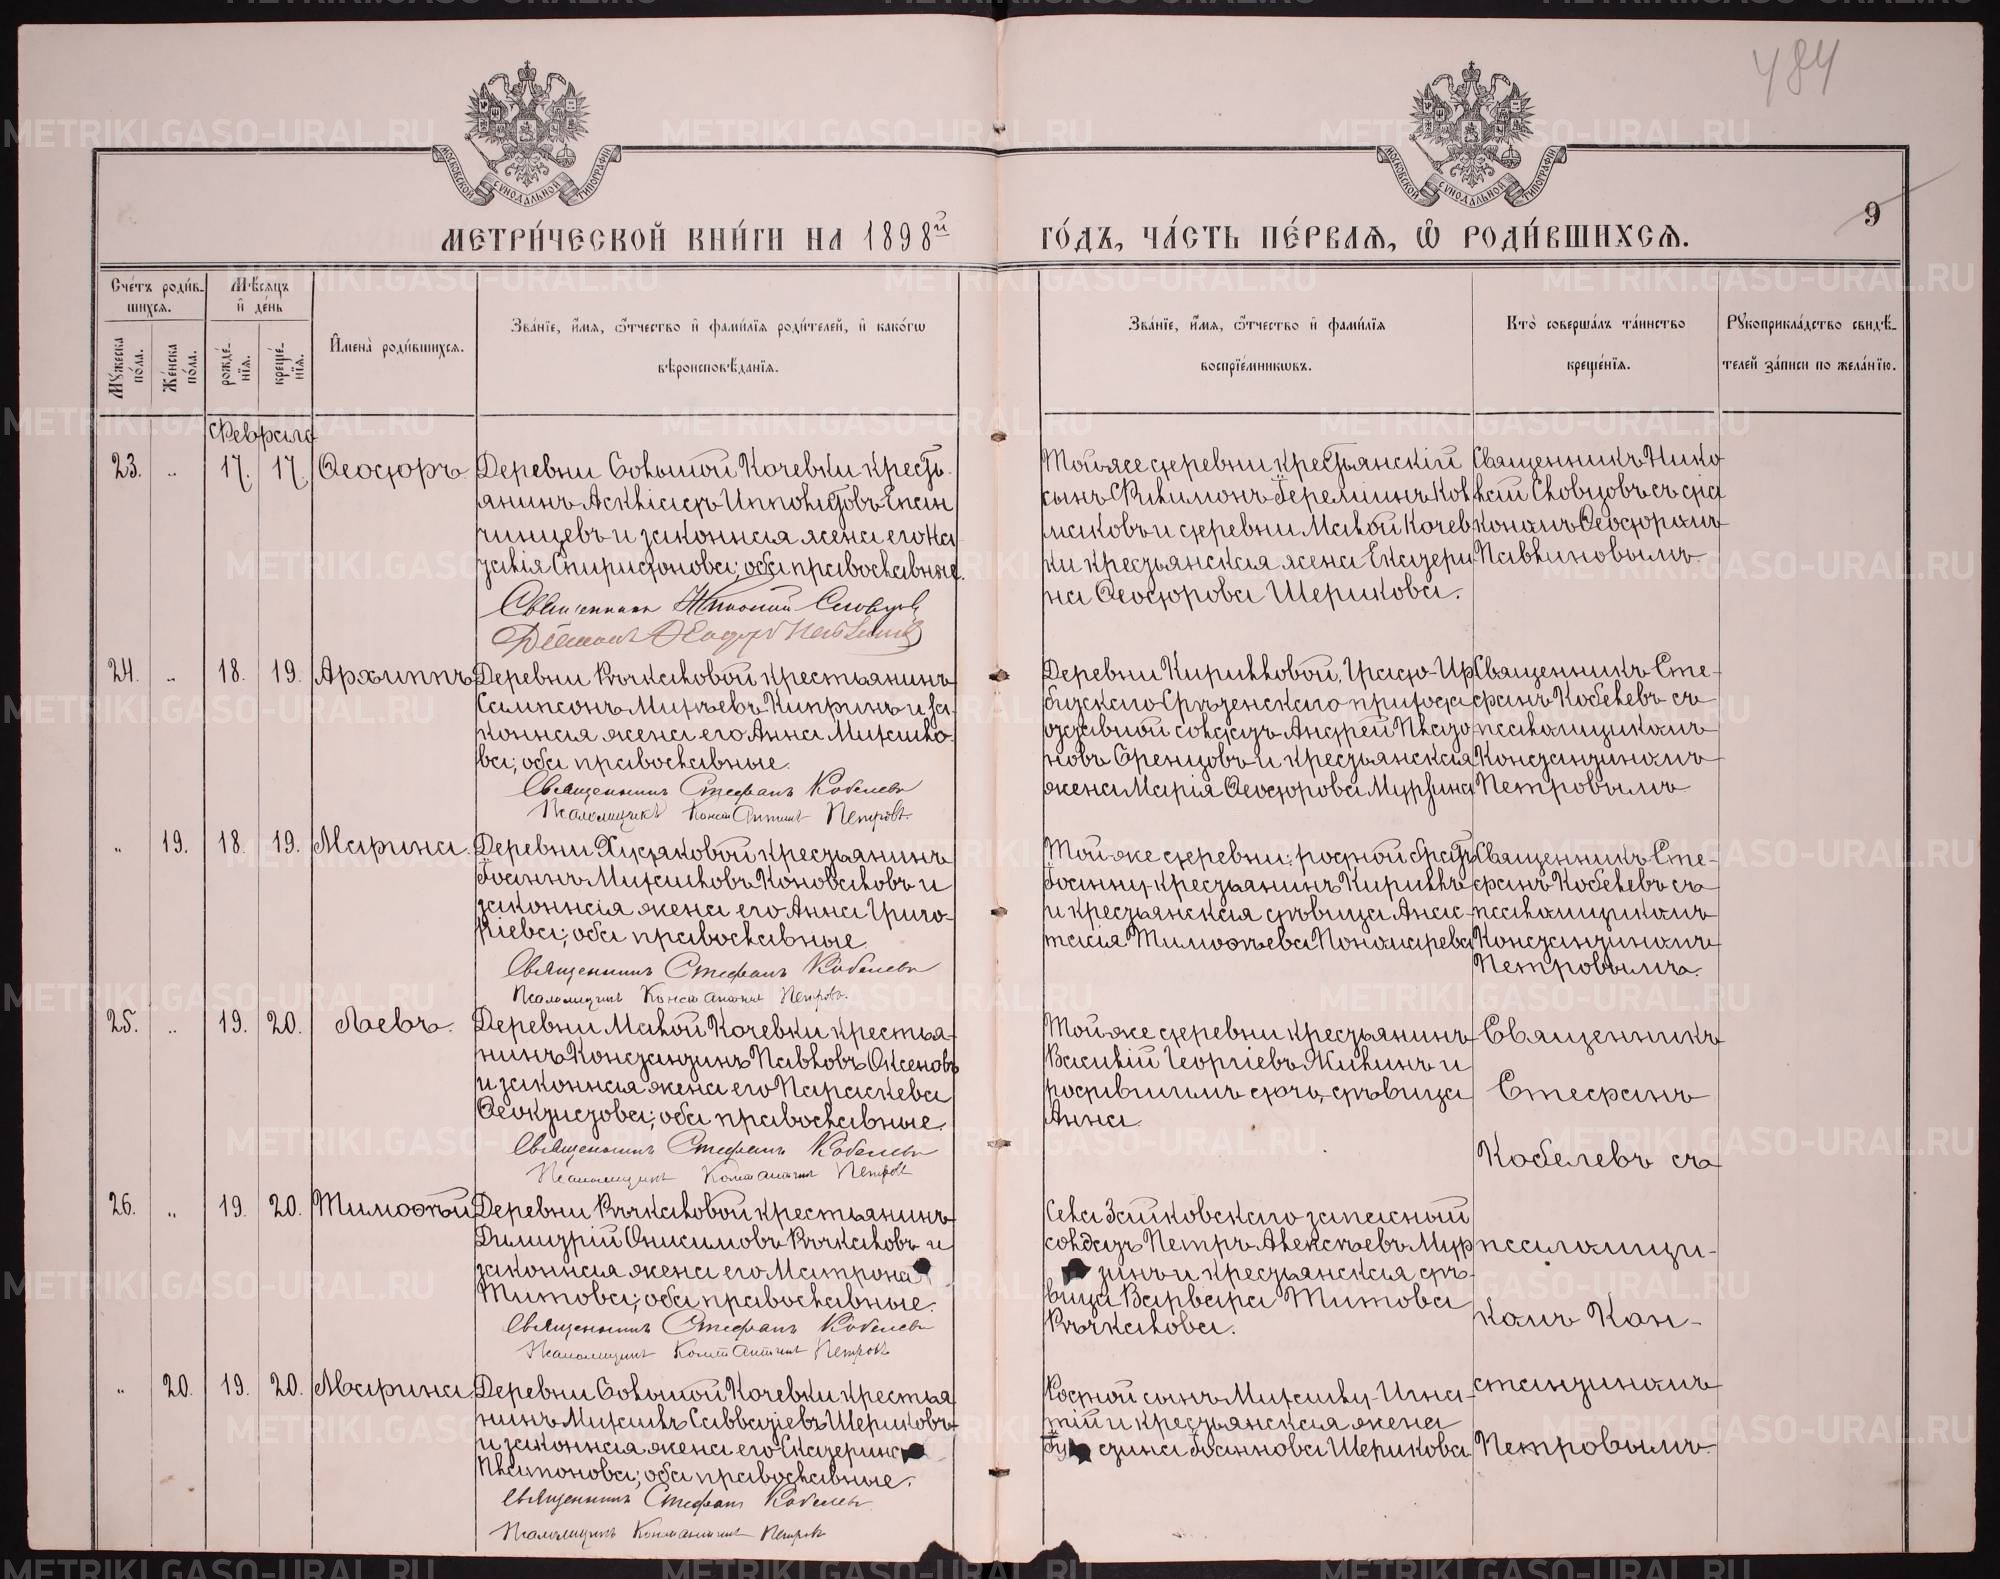 484
9
МОСКОВСКОЙ СѴНОДАЛЬНОЙ ТИПОГРАФІИ
МОСКОВСКОЙ СѴНОДАЛЬНОЙ ТИПОГРАФІИ
МЕТРИ́ЧЕСКОЙ КНИ́ГИ НА 1898й ГО́ДЪ, ЧА́СТЬ ПЕ́РВАЯ, Ѡ РОДИ́ВШИХСЯ.
Сче́тъ роди́в-
шихся.
Мꙋ́жеска по́ла.
Же́нска по́ла.
Мѣ́сяцъ
и҆ де́нь
рожде́нїя.
креще́нїя.
И҆мена̀ роди́вшихся.
Зва́нїе, и҆́мя, ѻ҆́тчество и҆ фами́лїя роди́телей, и҆ како́гѡ
вѣроисповѣ́данїя.
Зва́нїе, и҆́мя, ѻ҆́тчество и҆ фами́лїя
воспрїе́мникѡвъ.
Кто̀ соверша́лъ та́инство
креще́нїя.
Рꙋкоприкла́дство свидѣ́-
телей за́писи по жела́нїю.
Февраля
23. „ 17. 17. Ѳеодоръ.
Деревни Большой Кочевки кресть-
янинъ Асклiадъ Ипполитовъ Епан
чинцевъ и законная жена его На
талiя Спиридонова; оба православные.
Священникъ Николай Словцовъ
Дiаконъ Ѳеодоръ Павлиновъ
Той же деревни крестьянскiй
сынъ Филимонъ Iеремiинъ Кол
маковъ и деревни Малой Кочев
ки крестьянская жена Екатери
на Ѳеодорова Шерикова.
Священникъ Нико
лай Словцовъ съ дiа
кономъ Ѳеодоромъ
Павлиновымъ.
24. „ 18. 19. Архиппъ
Деревни Рычкаловой крестьянинъ
Сампсонъ Михѣевъ Кипринъ и за-
конная жена его Анна Михайло-
ва; оба православные.
Священникъ Стефанъ Кобелевъ
Псаломщикъ Константинъ Петровъ.
Деревни Кирилловой, Градо-Ир
битскаго Срѣтенскаго прихода
отставной солдатъ Андрей Плато
новъ Бренцовъ и крестьянская
жена Марiя Ѳеодорова Мурзина
Священникъ Сте-
фанъ Кобелевъ съ
псаломщикомъ
Константиномъ
Петровымъ
„ 19. 18. 19. Марина.
Деревни Худяковой крестьянинъ
Iоаннъ Михайловъ Коноваловъ и
законная жена его Анна Григо-
рiева; оба православные.
Священникъ Стефанъ Кобелевъ
Псаломщикъ Константинъ Петровъ.
Той же деревни: родной братъ
Iоанну крестьянинъ Кириллъ
и крестьянская дѣвица Анас-
тасiя Тимоѳѣева Пономарева
Священникъ Сте-
фанъ Кобелевъ съ
псаломщикомъ
Константиномъ
Петровымъ.
25. „ 19. 20. Левъ.
Деревни Малой Кочевки крестья-
нинъ Константинъ Павловъ Оксеновъ
и законная жена его Параскева
Ѳеоктистова; оба православные.
Священникъ Стефанъ Кобелевъ
Псаломщикъ Константинъ Петровъ
Той же деревни крестьянинъ
Василiй Георгiевъ Жилинъ и
родившимъ дочь, дѣвица
Анна.
Священникъ
Стефанъ
Кобелевъ съ
26. „ 19. 20. Тимоѳей
Деревни Рычкаловой крестьянинъ
Димитрiй Онисимовъ Рычкаловъ и
законная жена его Матрона
Титова; оба православные.
Священникъ Стефанъ Кобелевъ
Псаломщикъ Константинъ Петровъ
Села Зайковскаго запасной
солдатъ Петръ Алексѣевъ Мур
зинъ и крестьянская дѣ-
вица Варвара Титова
Рычкалова.
псаломщи-
комъ Кон-
„ 20. 19. 20. Марина
Деревни Большой Кочевки крестья
нинъ Михаилъ Савватiевъ Шериковъ
и законная жена его Екатерина
Платонова; оба православные.
Священникъ Стефанъ Кобелевъ
Псаломщикъ Константинъ Петровъ
Родной сынъ Михаилу Игна-
тiй и крестьянская жена
Iоаннова Шерикова
стантиномъ
Петровымъ.
METRIKI.GASO-URAL.RU